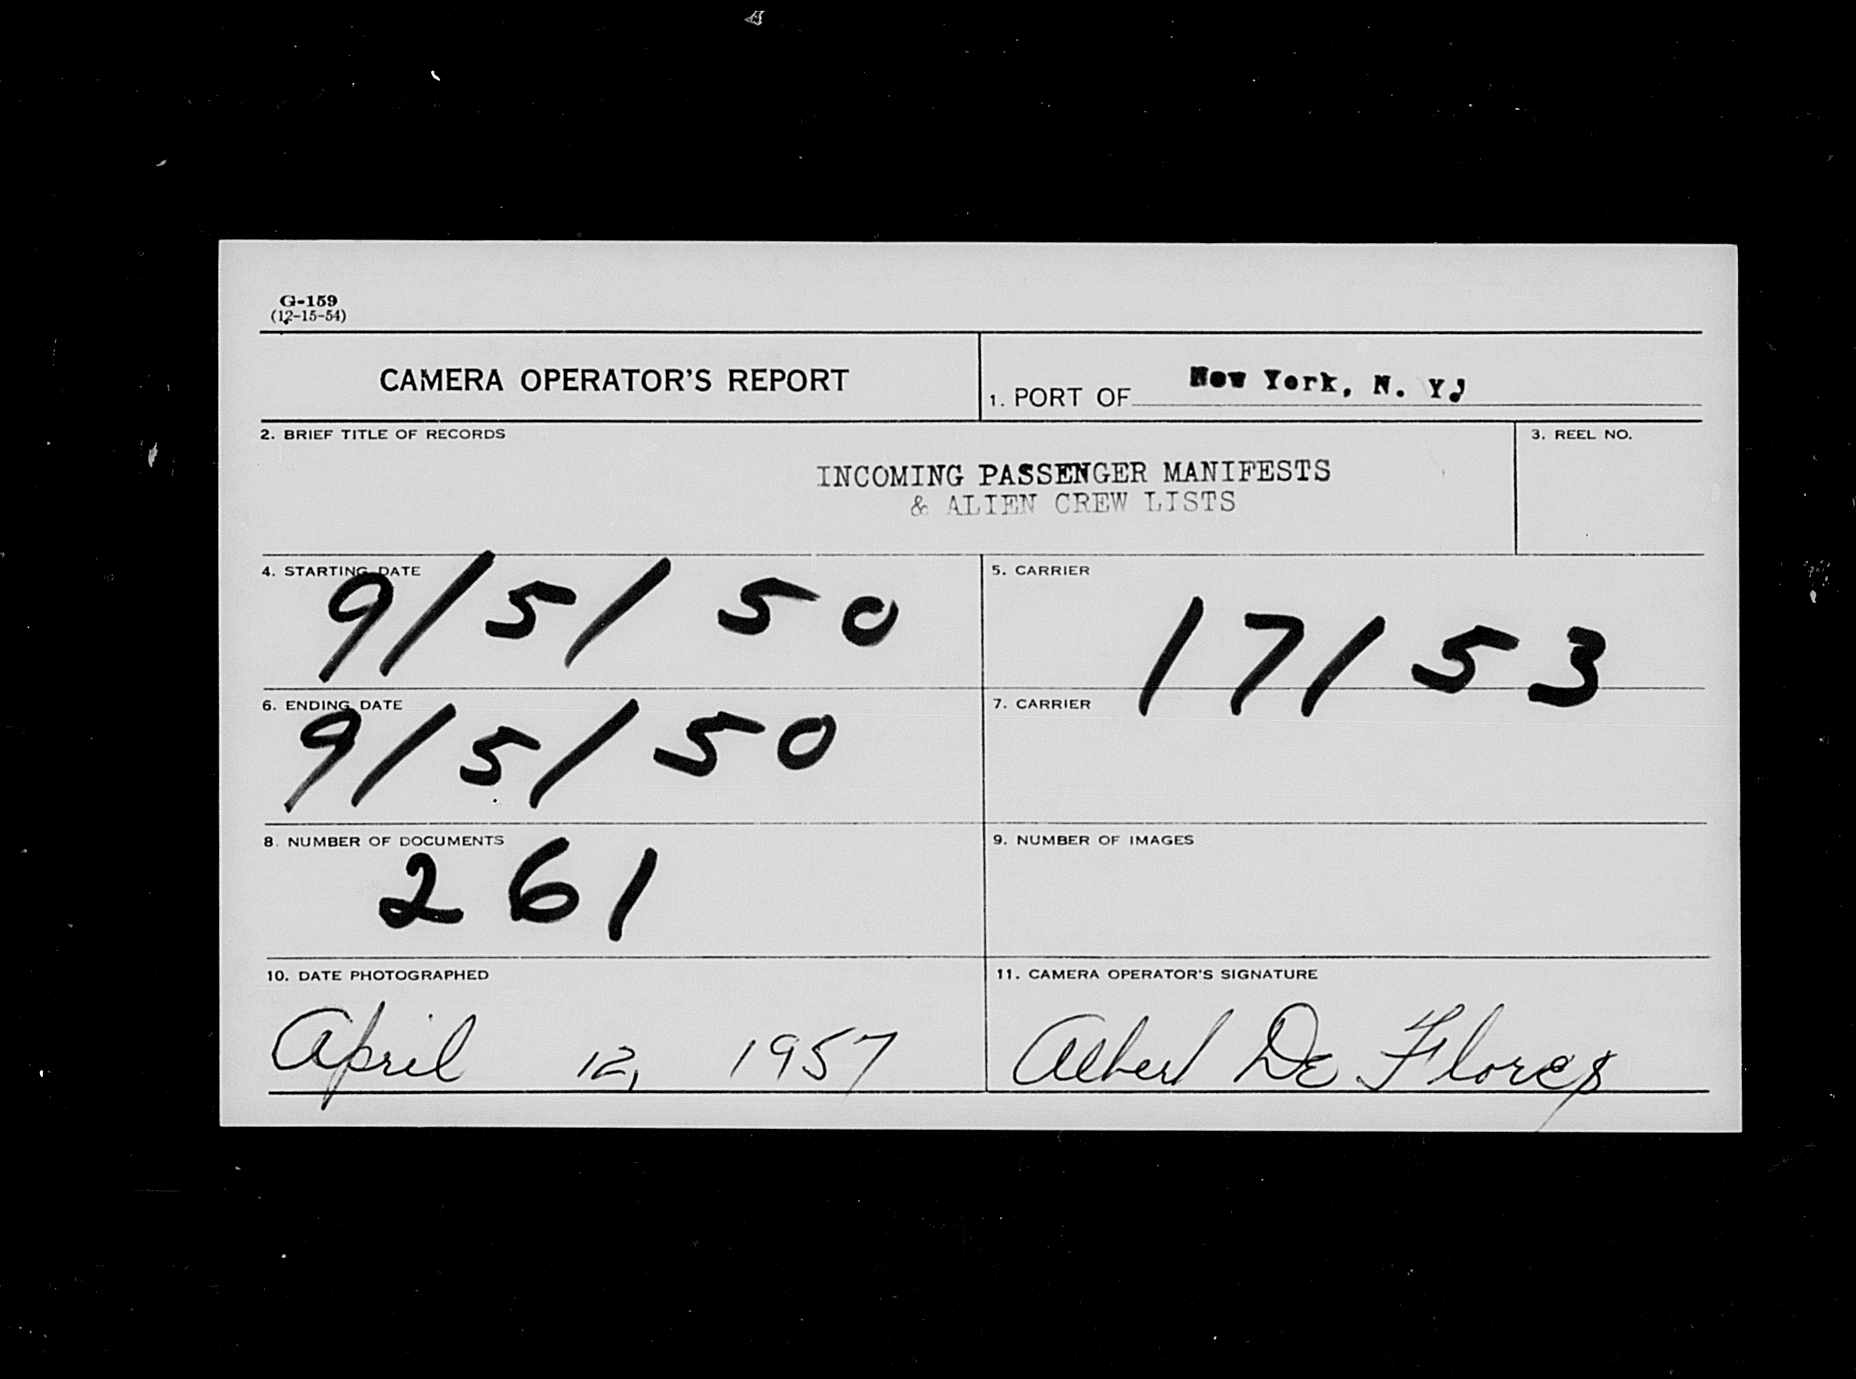 G-159
(12-15-54)
CAMERA OPERATOR'S REPORT
1. PORT OF New York, N. Y.
2. BRIEF TITLE OF RECORDS
INCOMING PASSENGER MANIFESTS
& ALIEN CREW LISTS
3. REEL NO.
4. STARTING DATE
9/5/50
5. CARRIER
17153
6. ENDING DATE
9/5/50
7. CARRIER
8. NUMBER OF DOCUMENTS
261
9. NUMBER OF IMAGES
10. DATE PHOTOGRAPHED
April 12, 1957
11. CAMERA OPERATOR'S SIGNATURE
Albert De Flores